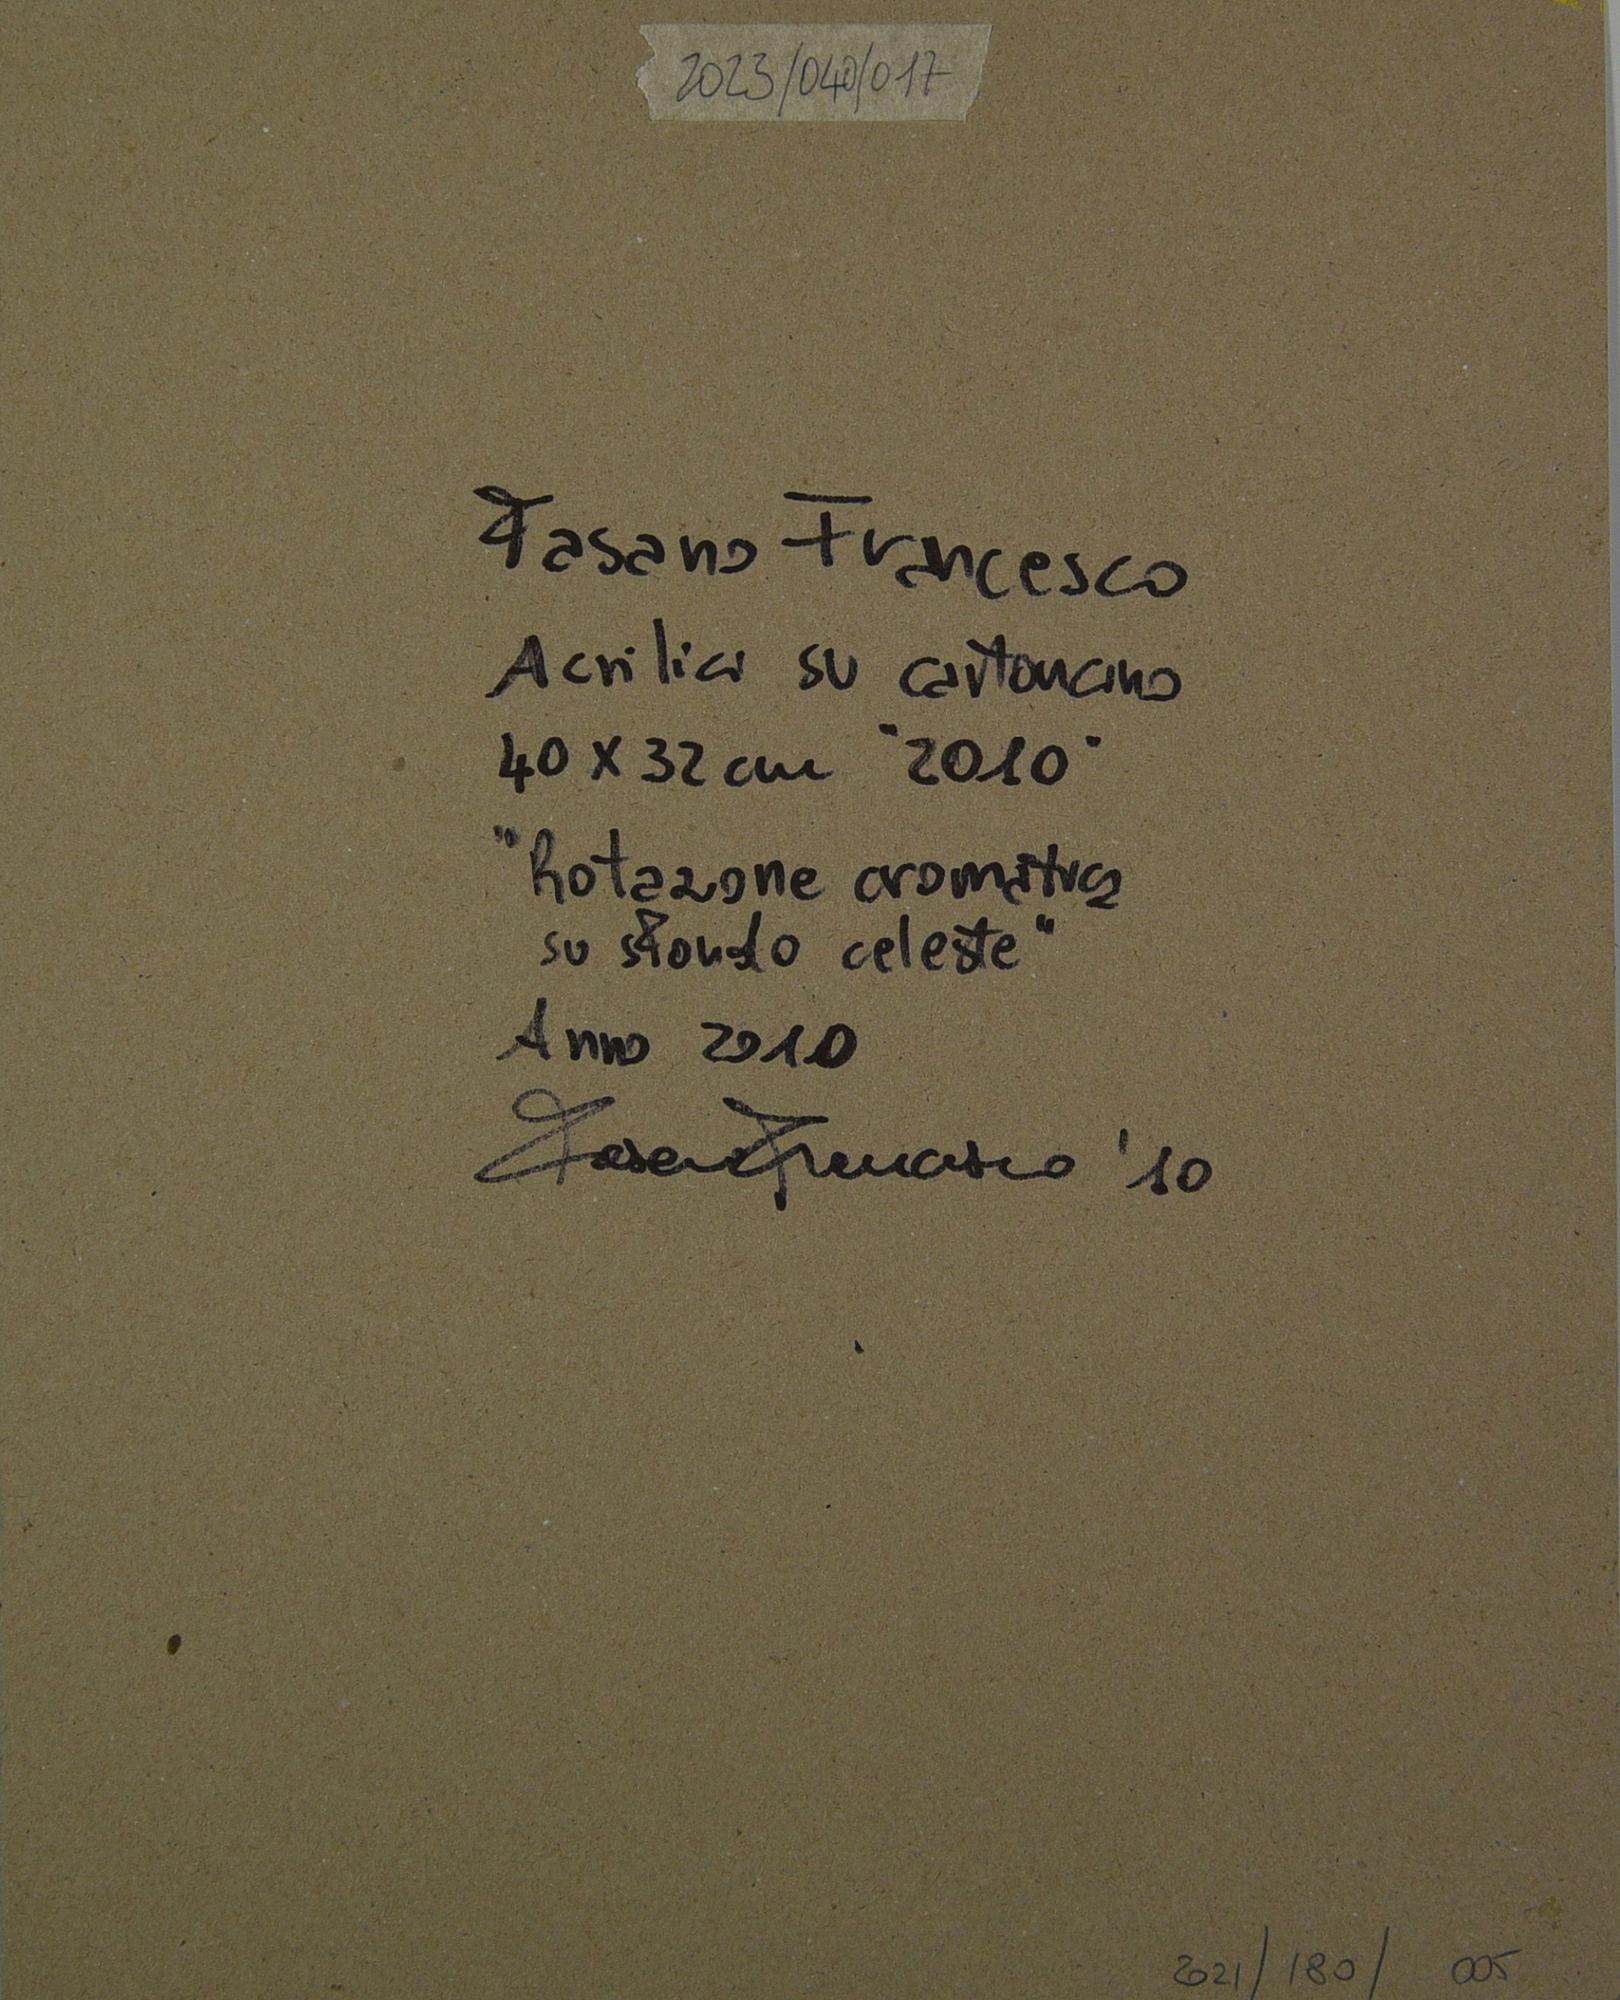 2023/040/017
Fasano Francesco
Acrilici su cartoncino
40 x 32 cm "2010"
"Rotazione cromatica
su sfondo celeste"
Anno 2010
Fasano Francesco '10
2021/180/ 005